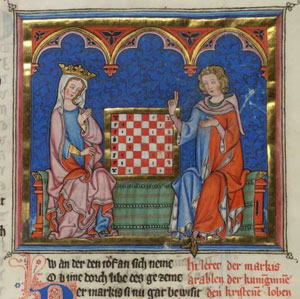 W an der den rosan sich neme
O b ine dorch libe ees gezeme
er markis si nu gar bewist
Hi leret der markis
arablen der kuniginnen
den kristene loben